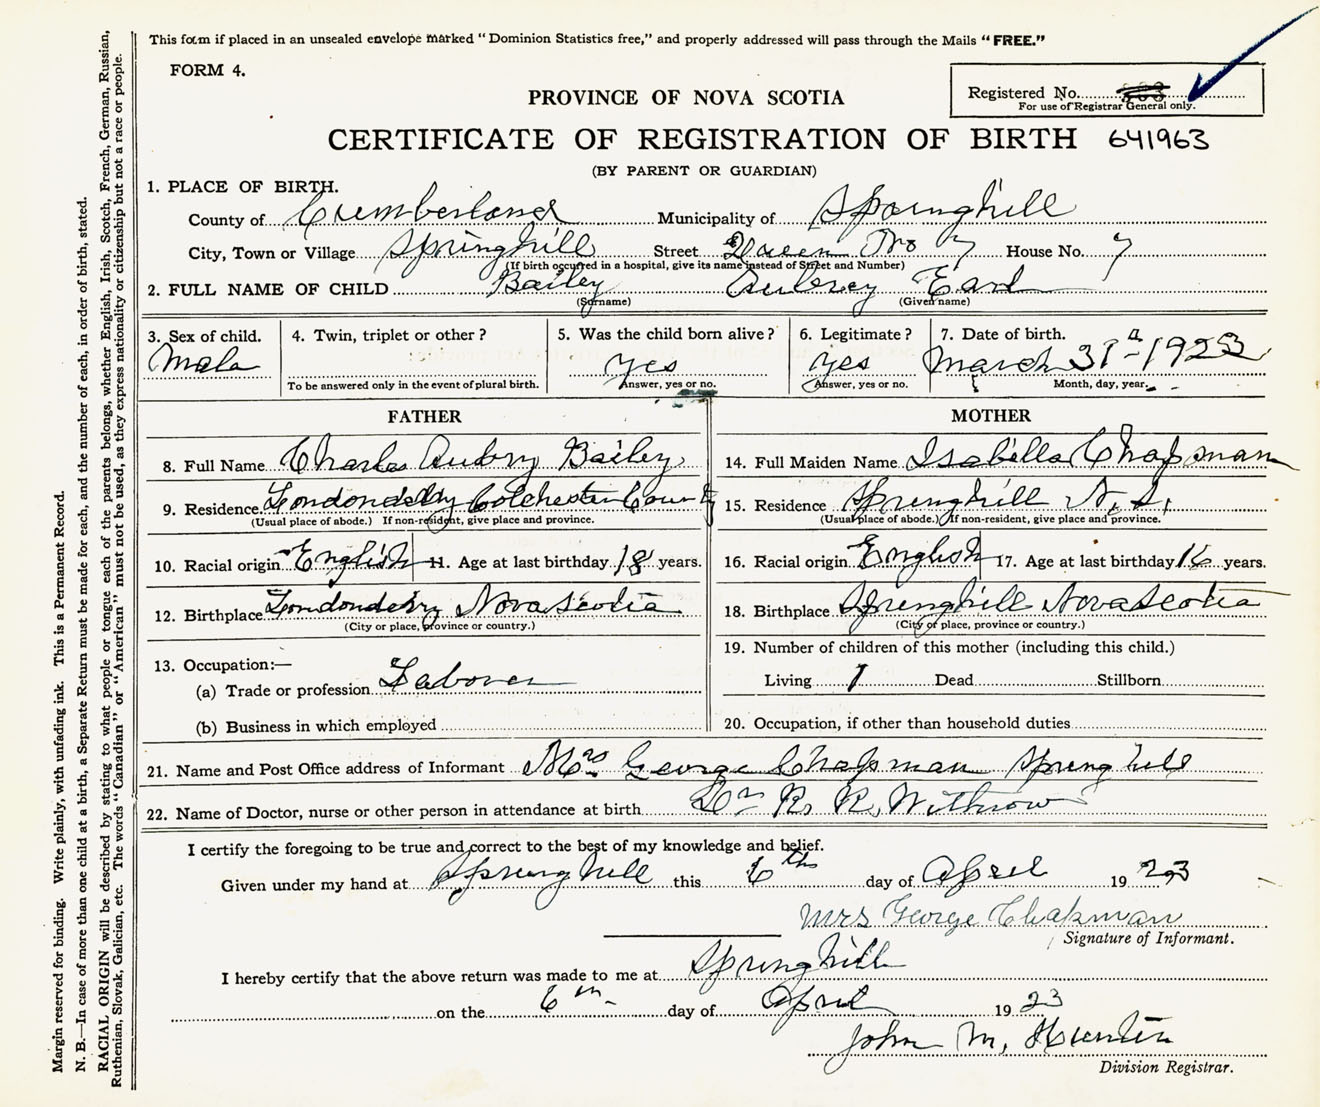 This form if placed in an unsealed envelope marked "Dominion Statistics free," and properly addressed will pass through the Mails "FREE."
FORM 4.
Registered No.
For use of Registrar General only.
PROVINCE OF NOVA SCOTIA
CERTIFICATE OF REGISTRATION OF BIRTH 641963
(BY PARENT OR GUARDIAN)
1. PLACE OF BIRTH.
County of Cumberland Municipality of Springhill
City, Town or Village Springhill Street Queen No 7 House No. 7
(If birth occurred in a hospital, give its name instead of Street and Number)
2. FULL NAME OF CHILD Bailey Aubrey Earl
(Surname) (Given name)
3. Sex of child. 4. Twin, triplet or other? 5. Was the child born alive? 6. Legitimate? 7. Date of birth.
Male yes yes March 31 1923
To be answered only in the event of plural birth. Answer, yes or no. Answer, yes or no. Month, day, year.
FATHER MOTHER
8. Full Name Charles Aubry Bailey 14. Full Maiden Name Isabella Chapman
9. Residence Londonderry Colchester County 15. Residence Springhill N.S.
(Usual place of abode.) If non-resident, give place and province. (Usual place of abode.) If non-resident, give place and province.
10. Racial origin English 11. Age at last birthday 18 years. 16. Racial origin English 17. Age at last birthday 16 years.
12. Birthplace Londonderry Nova Scotia 18. Birthplace Springhill Nova Scotia
(City or place, province or country.) (City or place, province or country.)
13. Occupation:— 19. Number of children of this mother (including this child.)
(a) Trade or profession Laborer Living 1 Dead Stillborn
(b) Business in which employed 20. Occupation, if other than household duties
21. Name and Post Office address of Informant Mrs George Chapman Springhill
22. Name of Doctor, nurse or other person in attendance at birth Dr R. R. Withrow
I certify the foregoing to be true and correct to the best of my knowledge and belief.
Given under my hand at Springhill this 6th day of April 1923
Mrs George Chapman
Signature of Informant.
I hereby certify that the above return was made to me at Springhill
on the 6th day of April 1923
John M. Hunter
Division Registrar.
Margin reserved for binding. Write plainly, with unfading ink. This is a Permanent Record.
N. B.—In case of more than one child at a birth, a Separate Return must be made for each, and the number of each, in order of birth, stated.
RACIAL ORIGIN will be described by stating to what people or tongue each of the parents belongs, whether English, Irish, Scotch, French, German, Russian,
Ruthenian, Slovak, Galician, etc. The words "Canadian" or "American" must not be used, as they express nationality or citizenship but not a race or people.